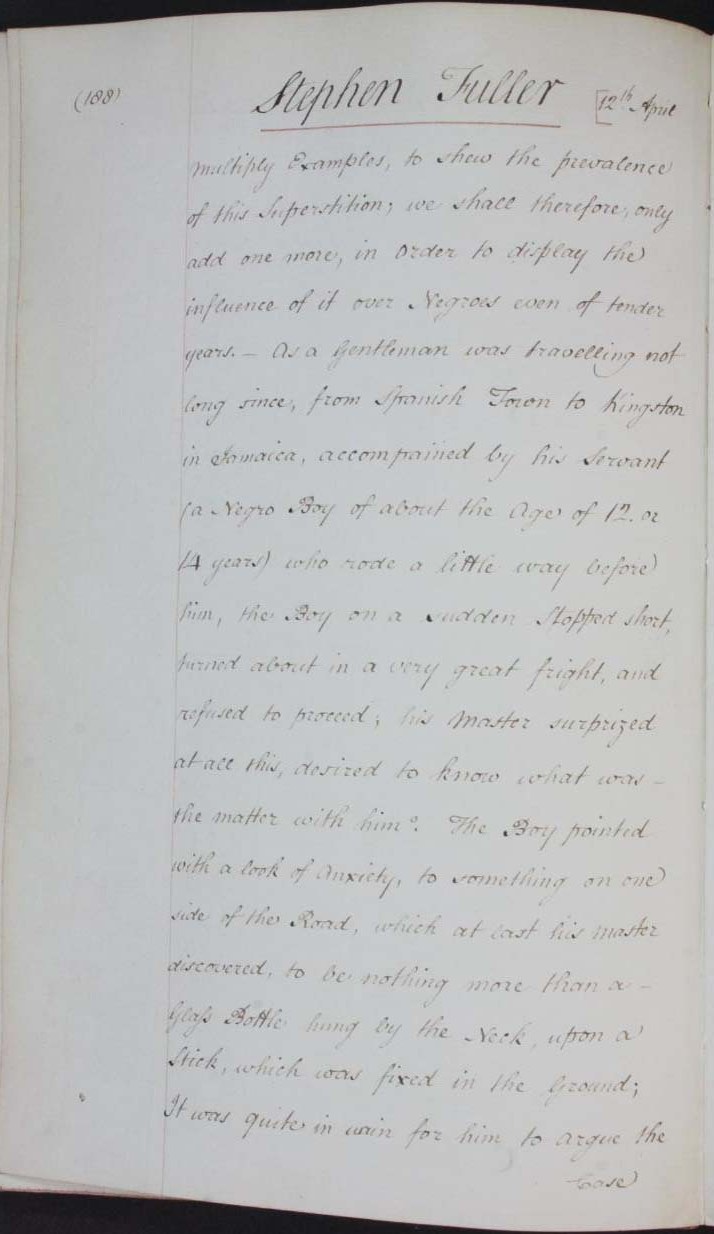 (188)
Stephen Fuller [12th April
multiply Examples, to shew the prevalence
of this Superstition; we shall therefore, only
add one more, in Order to display the
influence of it over Negroes even of tender
years. – As a Gentleman was travelling not
long since, from Spanish Town to Kingston
in Jamaica, accompained by his Servant
(a Negro Boy of about the Age of 12. or
14 years) who rode a little way before
him, the Boy on a sudden Stopped short,
turned about in a very great fright, and
refused to proceed; his Master surprized
at all this, desired to know what was –
the matter with him?. The Boy pointed
with a look of Anxiety, to something on one
side of the Road, which at last his master
discovered, to be nothing more than a –
Glass Bottle hung by the Neck, upon a
Stick, which was fixed in the Ground;
It was quite in vain for him to argue the
Case